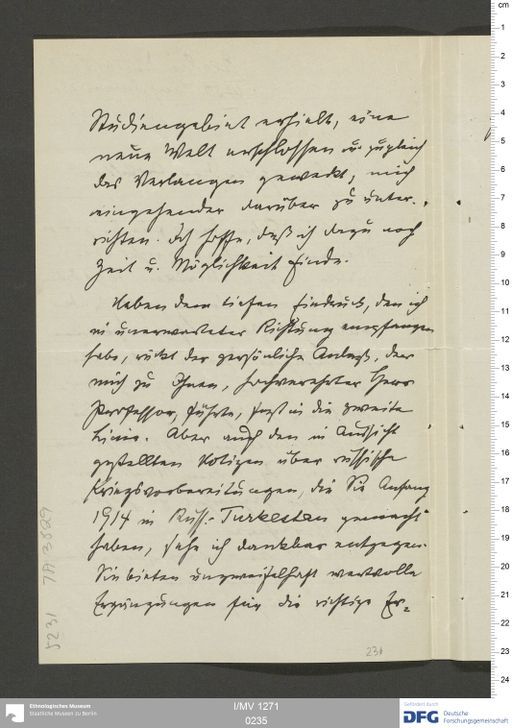 Studiengebiet erhielt, eine
neue Welt erschlossen u. zugleich
das Verlangen geweckt, mich
eingehender darüber zu unter-
richten. Ich hoffe, daß ich dazu noch
Zeit u. Möglichkeit finde.
Neben dem tiefen Eindruck, den ich
in unerwarteter Richtung empfangen
habe, rückt der persönliche Anlaß, der
mich zu Ihnen, hochverehrter Herr
Professor, führte, fast in die zweite
Linie. Aber auch den in Aussicht
gestellten Notizen über russische
Kriegsvorbereitungen, die Sie Anfang
1914 in Russ.-Turkestan gemacht
haben, sehe ich dankbar entgegen.
Sie bieten unzweifelhaft wertvolle
Ergänzungen für die richtige Er-
231
5231 7A 3829
cm
1
2
3
4
5
6
7
8
9
10
11
12
13
14
15
16
17
18
19
20
21
22
23
24
Ethnologisches Museum
Staatliche Museen zu Berlin
I/MV 1271
0235
Gefördert durch
DFG Deutsche
Forschungsgemeinschaft